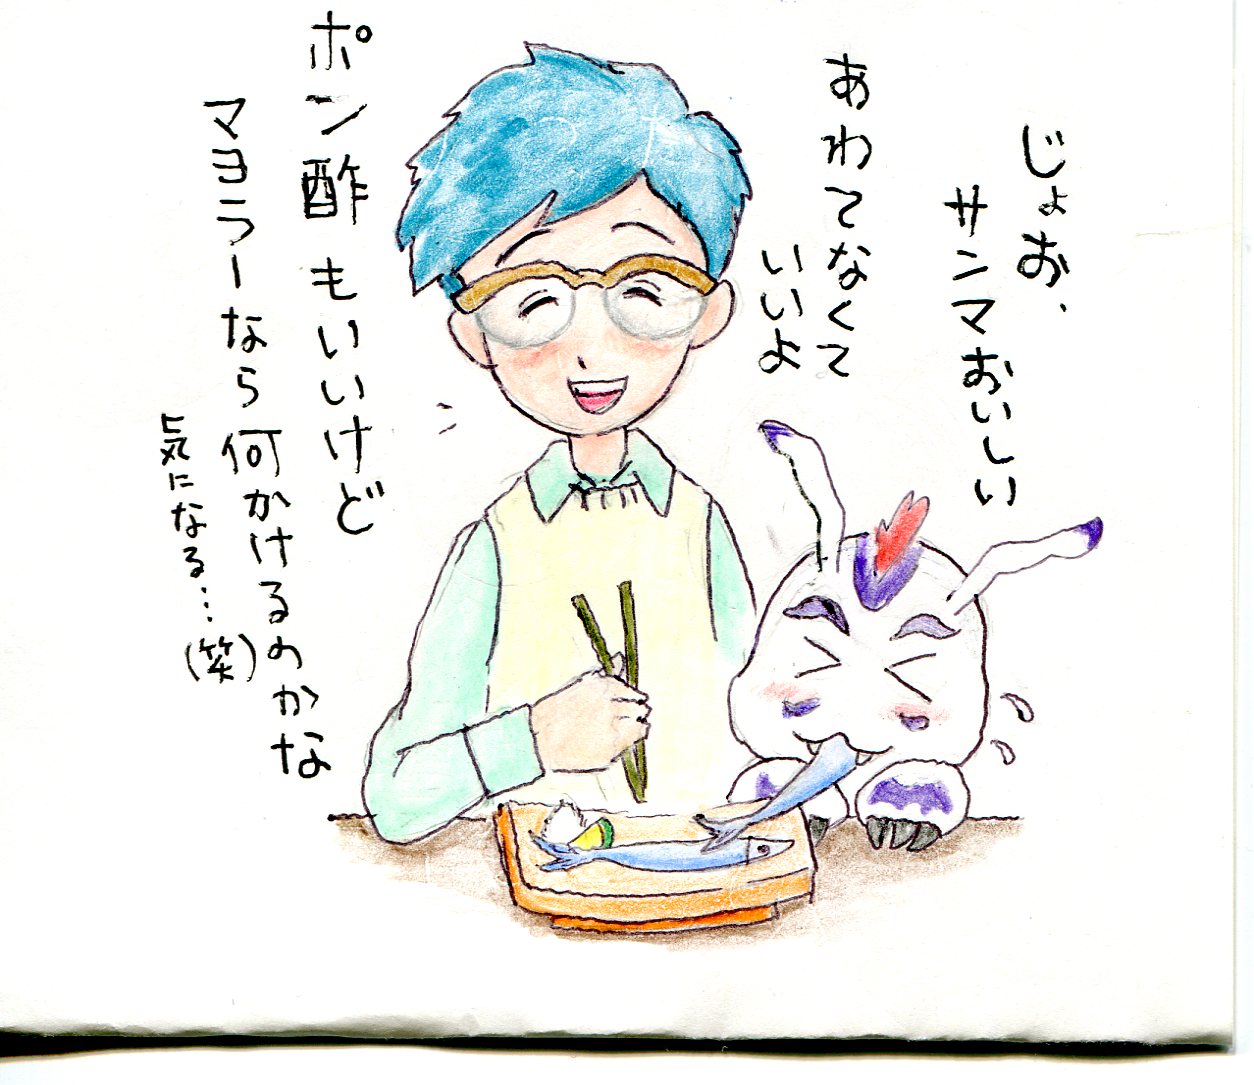 じょお、
サンマおいしい
あわてなくて
いいよ
ポン酢もいいけど
マヨラーなら何かけるのかな
気になる…(笑)